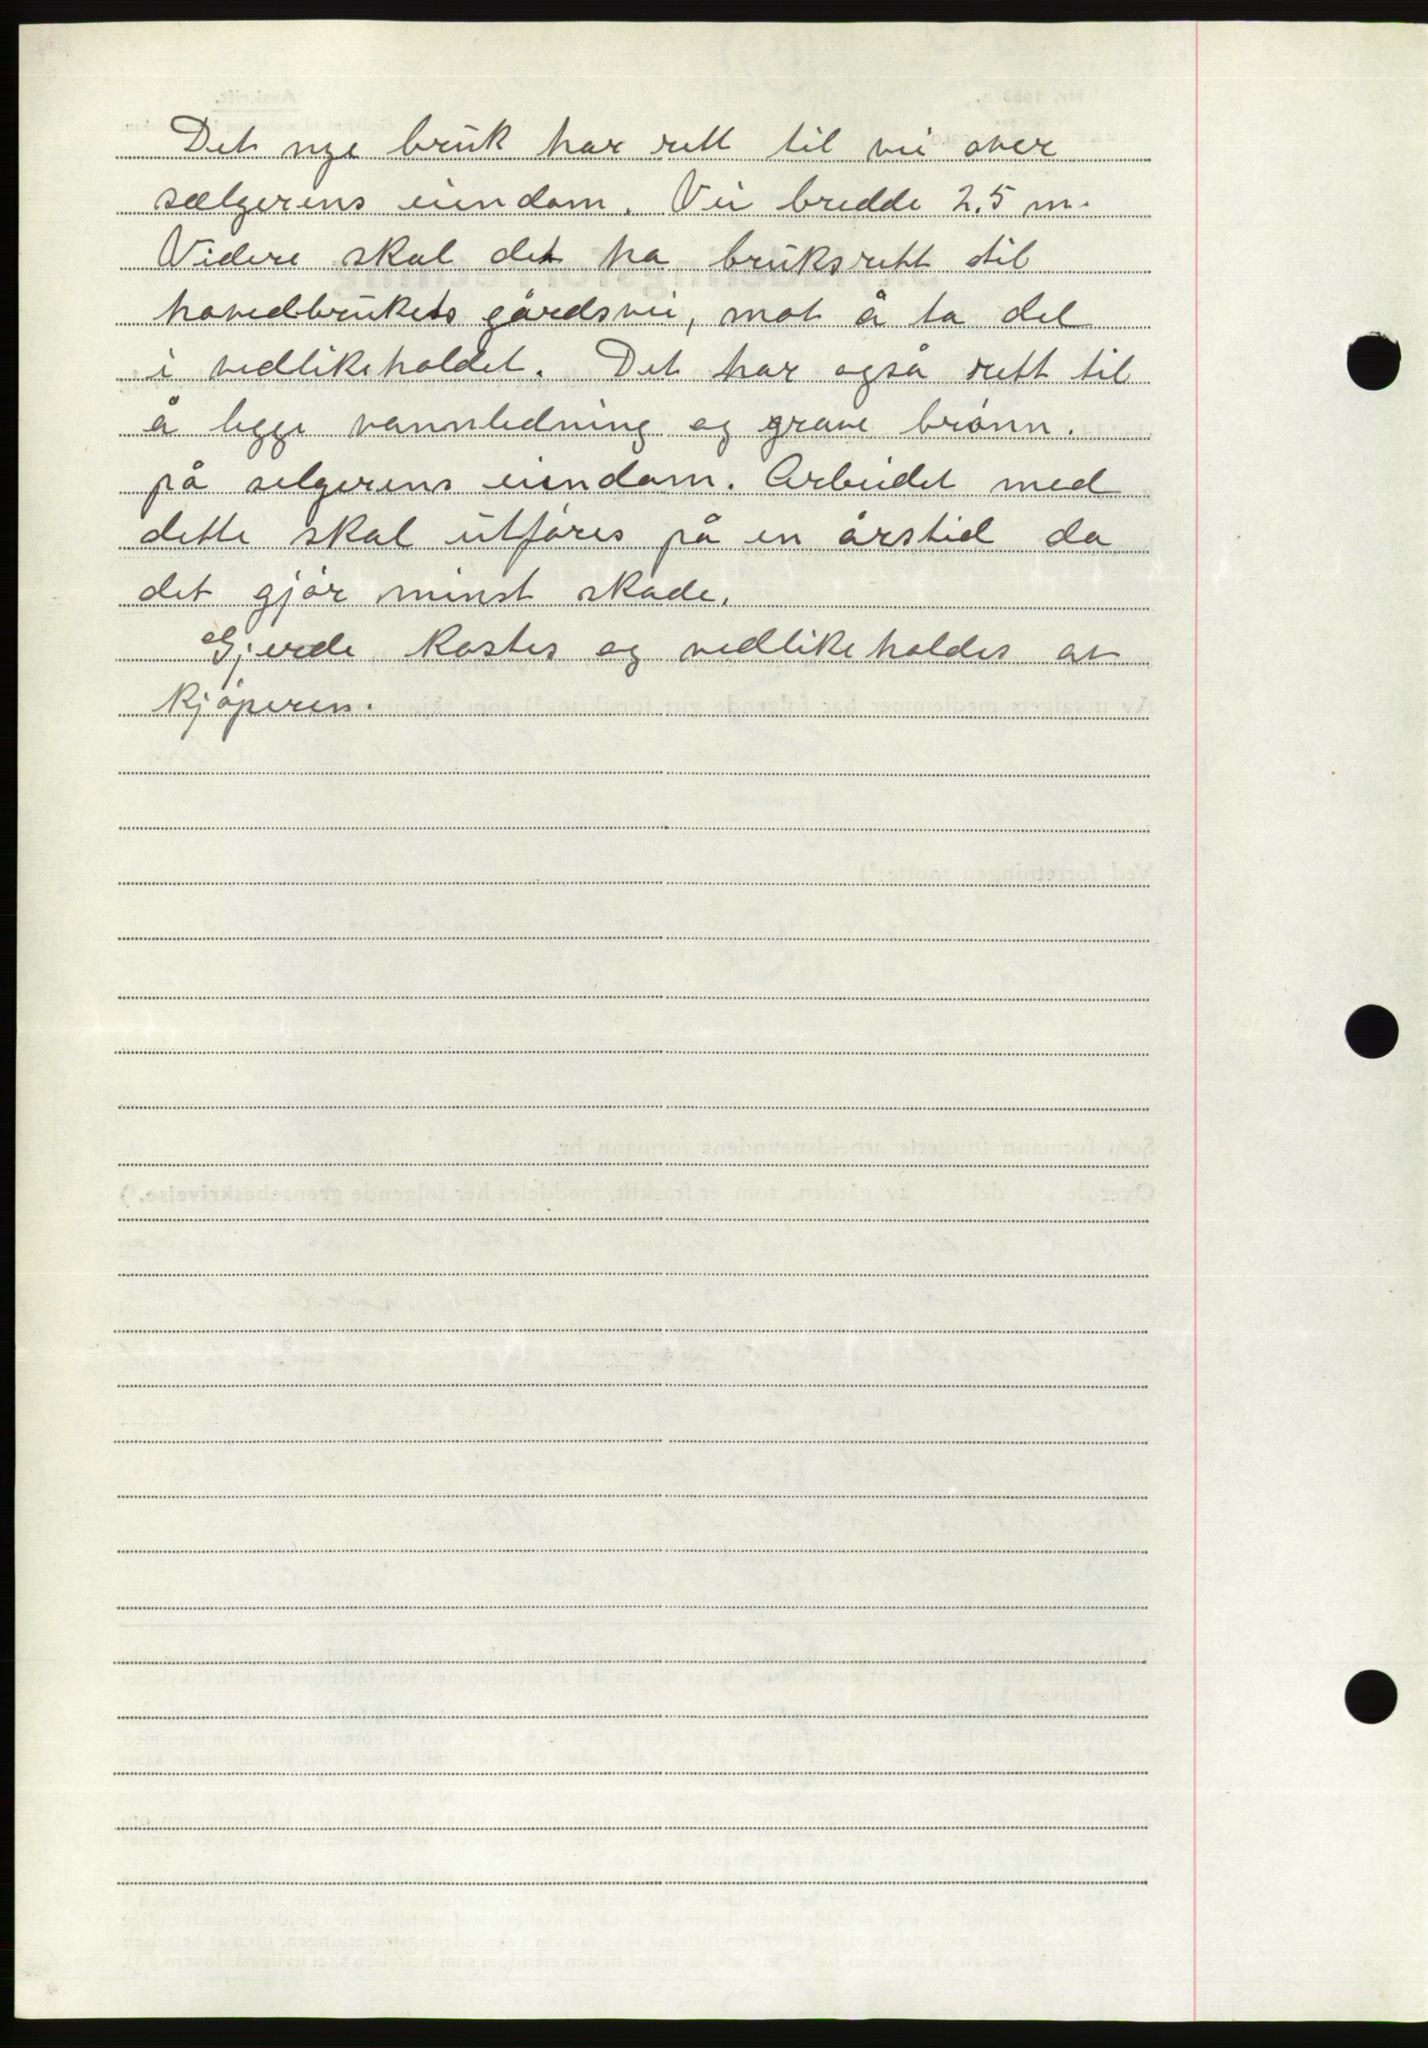 Det nye bruk har rett til vei over
sælgerens eiendom. Vei bredde 2.5 m.
Videre skal det ha bruksrett til
hovedbrukets gårdsvei, mot å ta del
i vedlikeholdet. Det har også rett til
å legge vannledning og grave brønn.
på selgerens eiendom. Arbeidet med
dette skal utføres på en årstid da
det gjør minst skade.
Gjerde kostes og vedlikeholdes av
kjøperen.